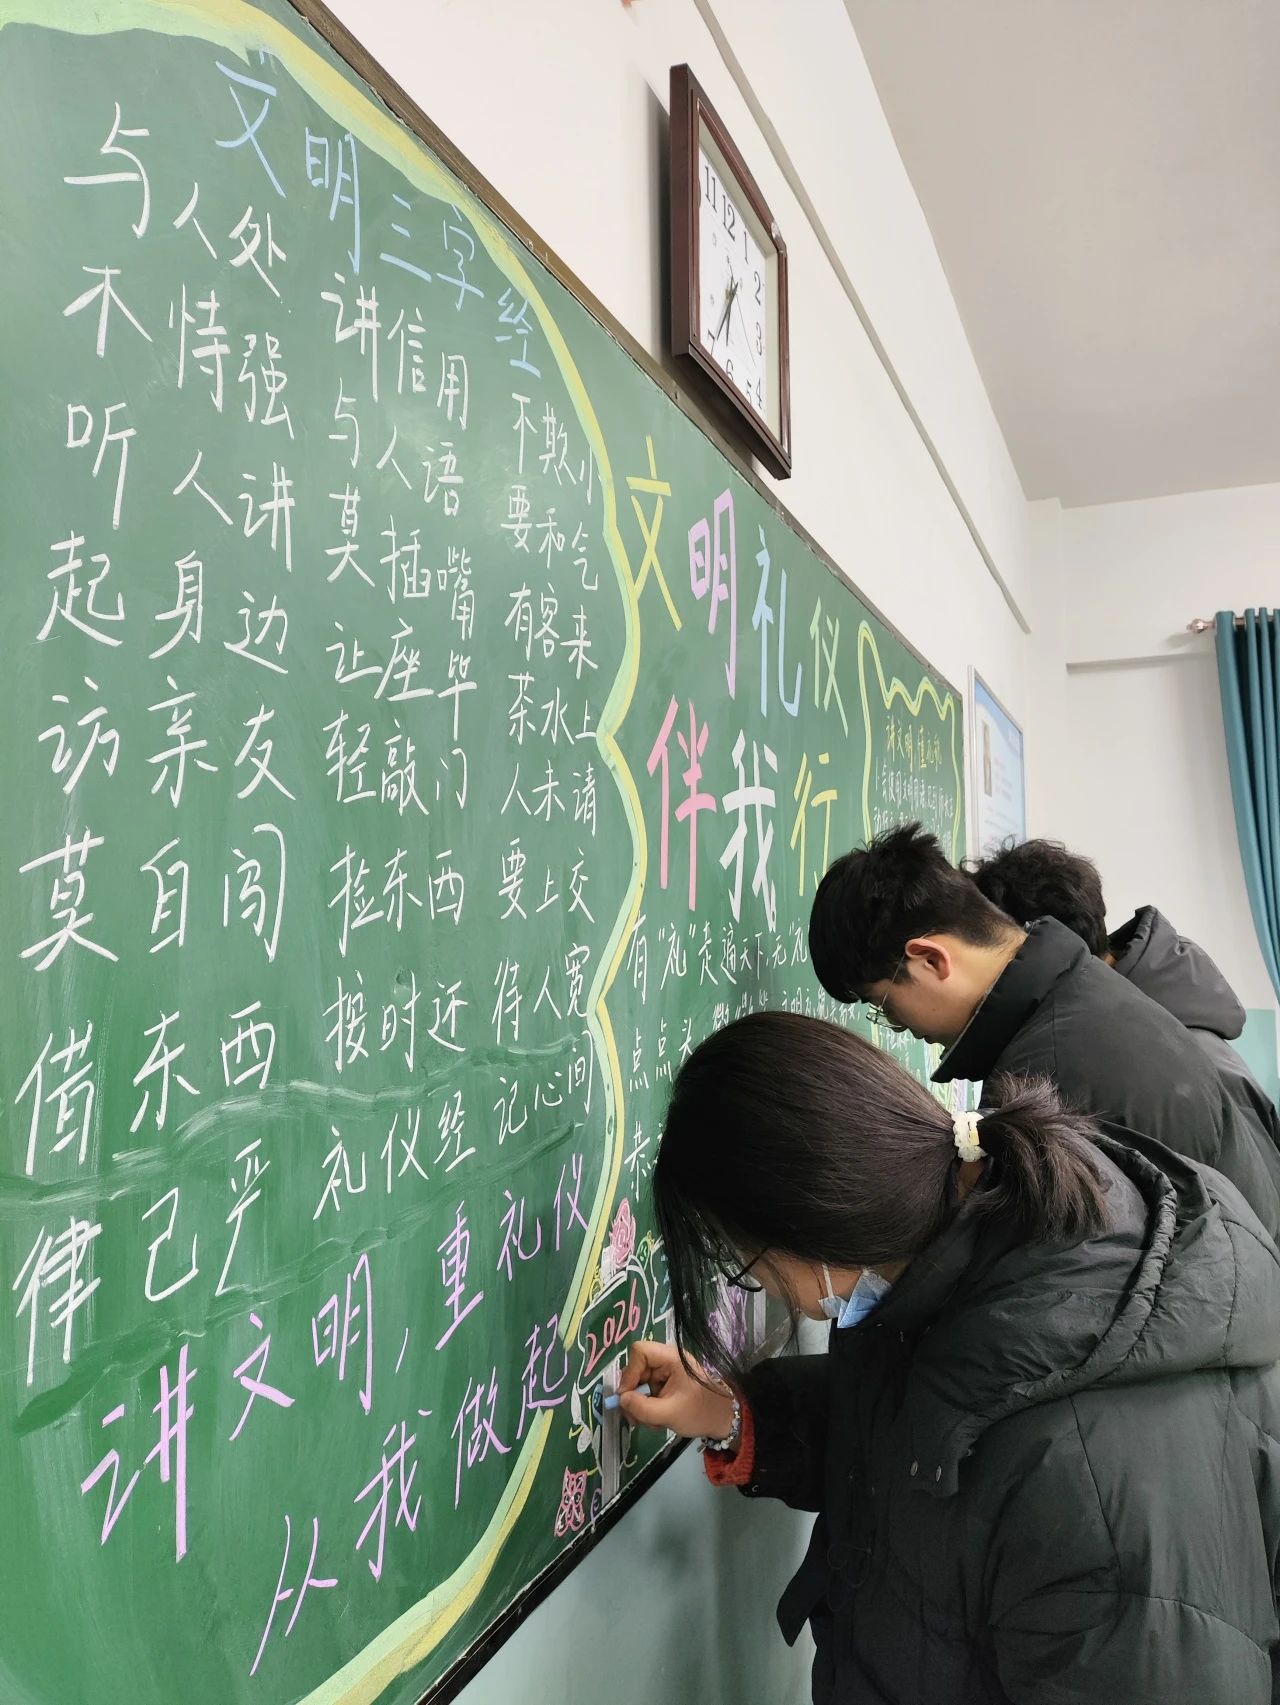 文明三字经
与人处 讲信用 不欺小
不恃强 与人语 要和气
听人讲 莫插嘴 有客来
起身边 让座毕 茶水上
访亲友 轻敲门 人未请
莫自闯 捡东西 要上交
借东西 按时还 待人宽
律己严 礼仪经 记心间
讲文明，重礼仪
从我做起
11 12 1 2 3 4 5 6 7
文明礼仪
伴我行
有“礼”走遍天下，无“礼
点点头
恭
讲文明 重礼仪
2026